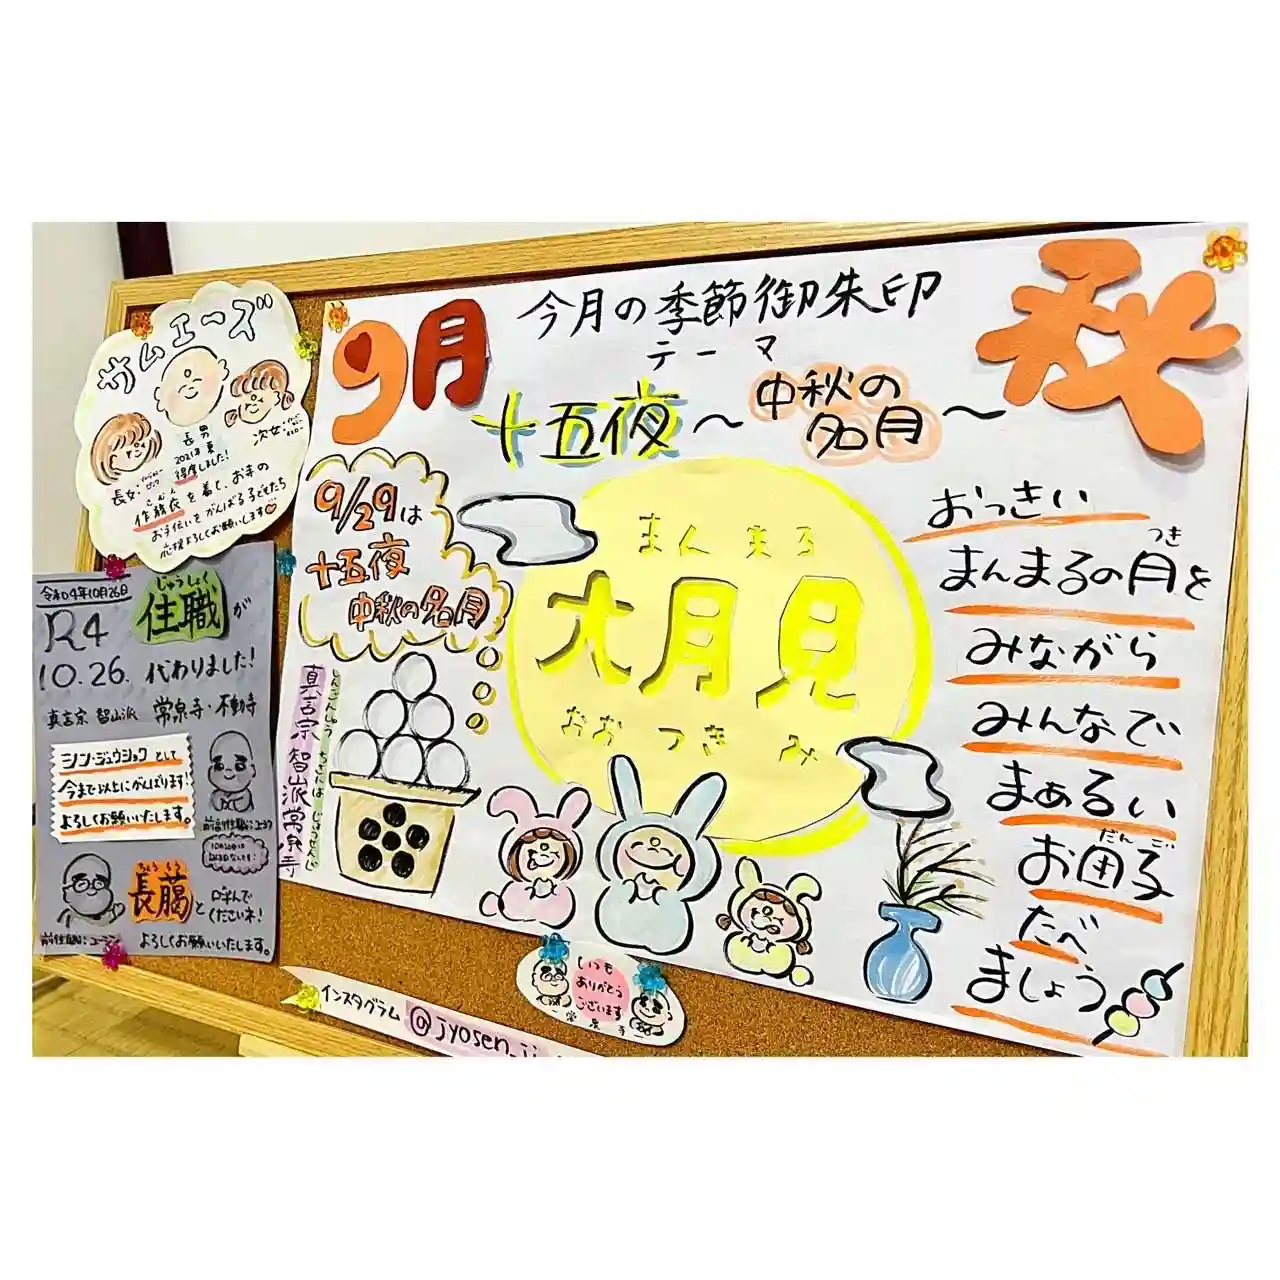 サムエーズ
長男
2021年夏
得度しました!
次女:
長女:
作務衣を着て、お寺の
お手伝いをがんばる子どもたち
応援よろしくお願いします
令和04年10月26日
R4
10.26.
じゅうしょく
住職が
代わりました!
真言宗 智山派 常泉寺・不動寺
シン・ジュウショクとして
今まで以上にがんばります!
よろしくお願いいたします。
ちょうろう
長﨟と
呼んで
くださいネ!
よろしくお願いいたします。
9月
今月の季節御朱印
テーマ
十五夜~中秋の名月~
秋
9/29は
十五夜
中秋の名月
真言宗 智山派 常泉寺
まん まる
大月見
おお つき み
おっきい
つき
まんまるの月を
みながら
みんなで
まぁるい
だんご
お団子
たべ
ましょう
いつも
ありがとう
ございます
常泉寺
インスタグラム @jyosen_ji